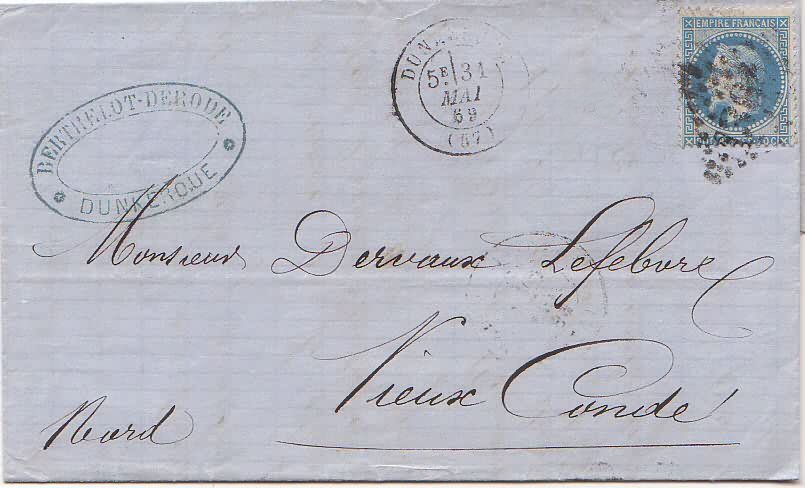 BERTHELOT-DERODE
DUNKERQUE
5E 31
MAI
69
(57)
EMPIRE FRANÇAIS
Monsieur Dervaux Lefebvre
Vieux Condé
Nord